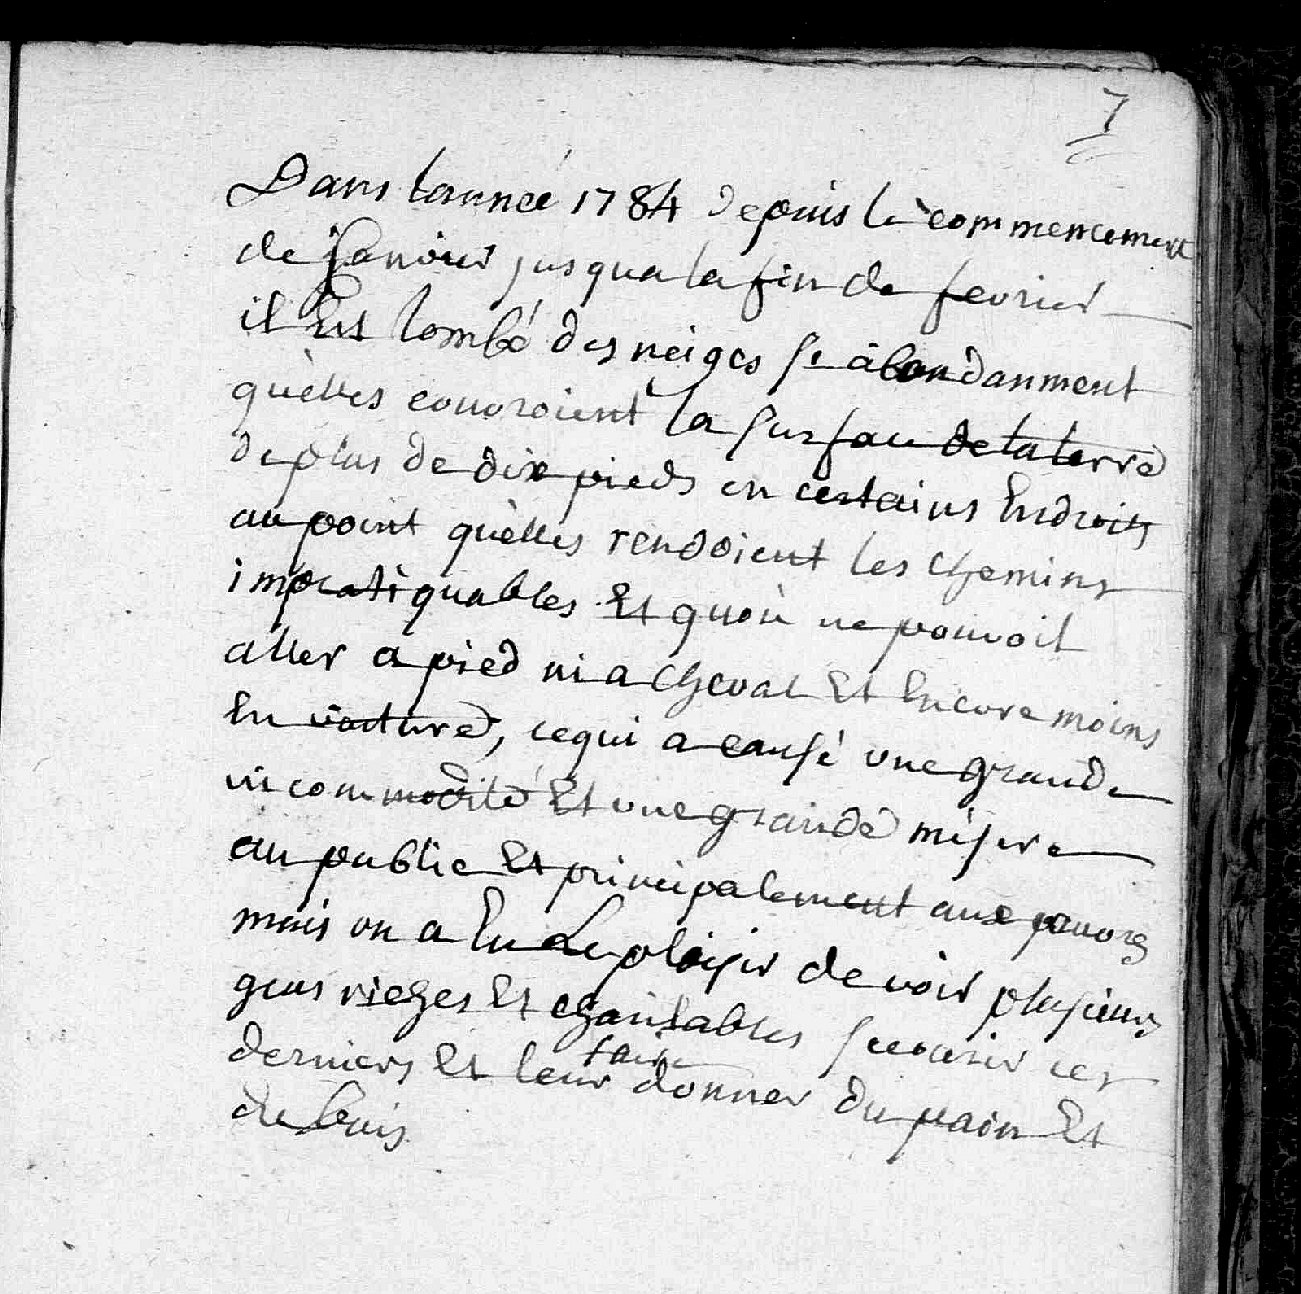 7
Dans lannée 1784 depuis le commencement
de janvier jusqua la fin de fevrier
il Est tombé des neiges si abondanment
quèlles couvroient la surface de la terre
de plus de dix pieds en certains Endroits
au point quèlles rendoient les chemins
impratiquables Et quon ne pouvoit
aller a pied ni a cheval Et Encore moins
En voiture, ce qui a causé une grande
incommodité Et une grande misere
au public Et principalement aux pauvres
mais on a Eu Le plaisir de voir plusieurs
gens riches Et charitables secourir ces
derniers Et leur faire donner du pain Et
du bois